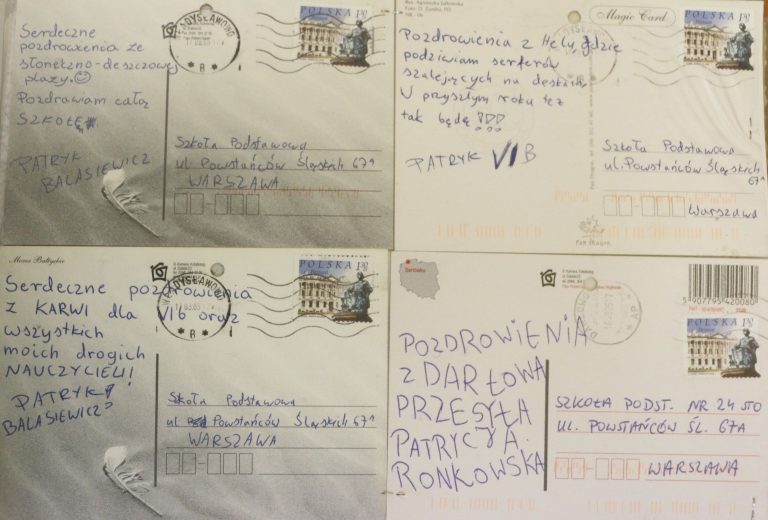 Serdeczne
pozdrowienia ze
słoneczno-deszczowej
plaży.
Pozdrawiam całą
SZKOŁĘ
PATRYK
BALASIEWICZ
WŁADYSŁAWOWO
B
POLSKA 1,30
Szkoła Podstawowa
ul. Powstańców Śląskich 67A
WARSZAWA
Magic Card
Pozdrowienia z Helu, gdzie
podziwiam serferów
szalejących na deskach.
W przyszłym roku też
tak będę !!!
PATRYK VI B
POLSKA 1,30
Szkoła Podstawowa
ul. Powstańców Śląskich
67A
Warszawa
Morze Bałtyckie
Serdeczne pozdrowienia
z KARWI dla VI b oraz
wszystkich
moich drogich
NAUCZYCIELI!
PATRYK
BALASIEWICZ
WŁADYSŁAWOWO
B
POLSKA 1,30
Szkoła Podstawowa
ul. Powstańców Śląskich 67A
WARSZAWA
Darłówko
POZDROWIENIA
Z DARŁOWA
PRZESYŁA
PATRYCJA.
RONKOWSKA
5 907795 420080
POLSKA 1,30
SZKOŁA PODST. NR 24 STO
UL. POWSTAŃCÓW ŚL. 67A
WARSZAWA